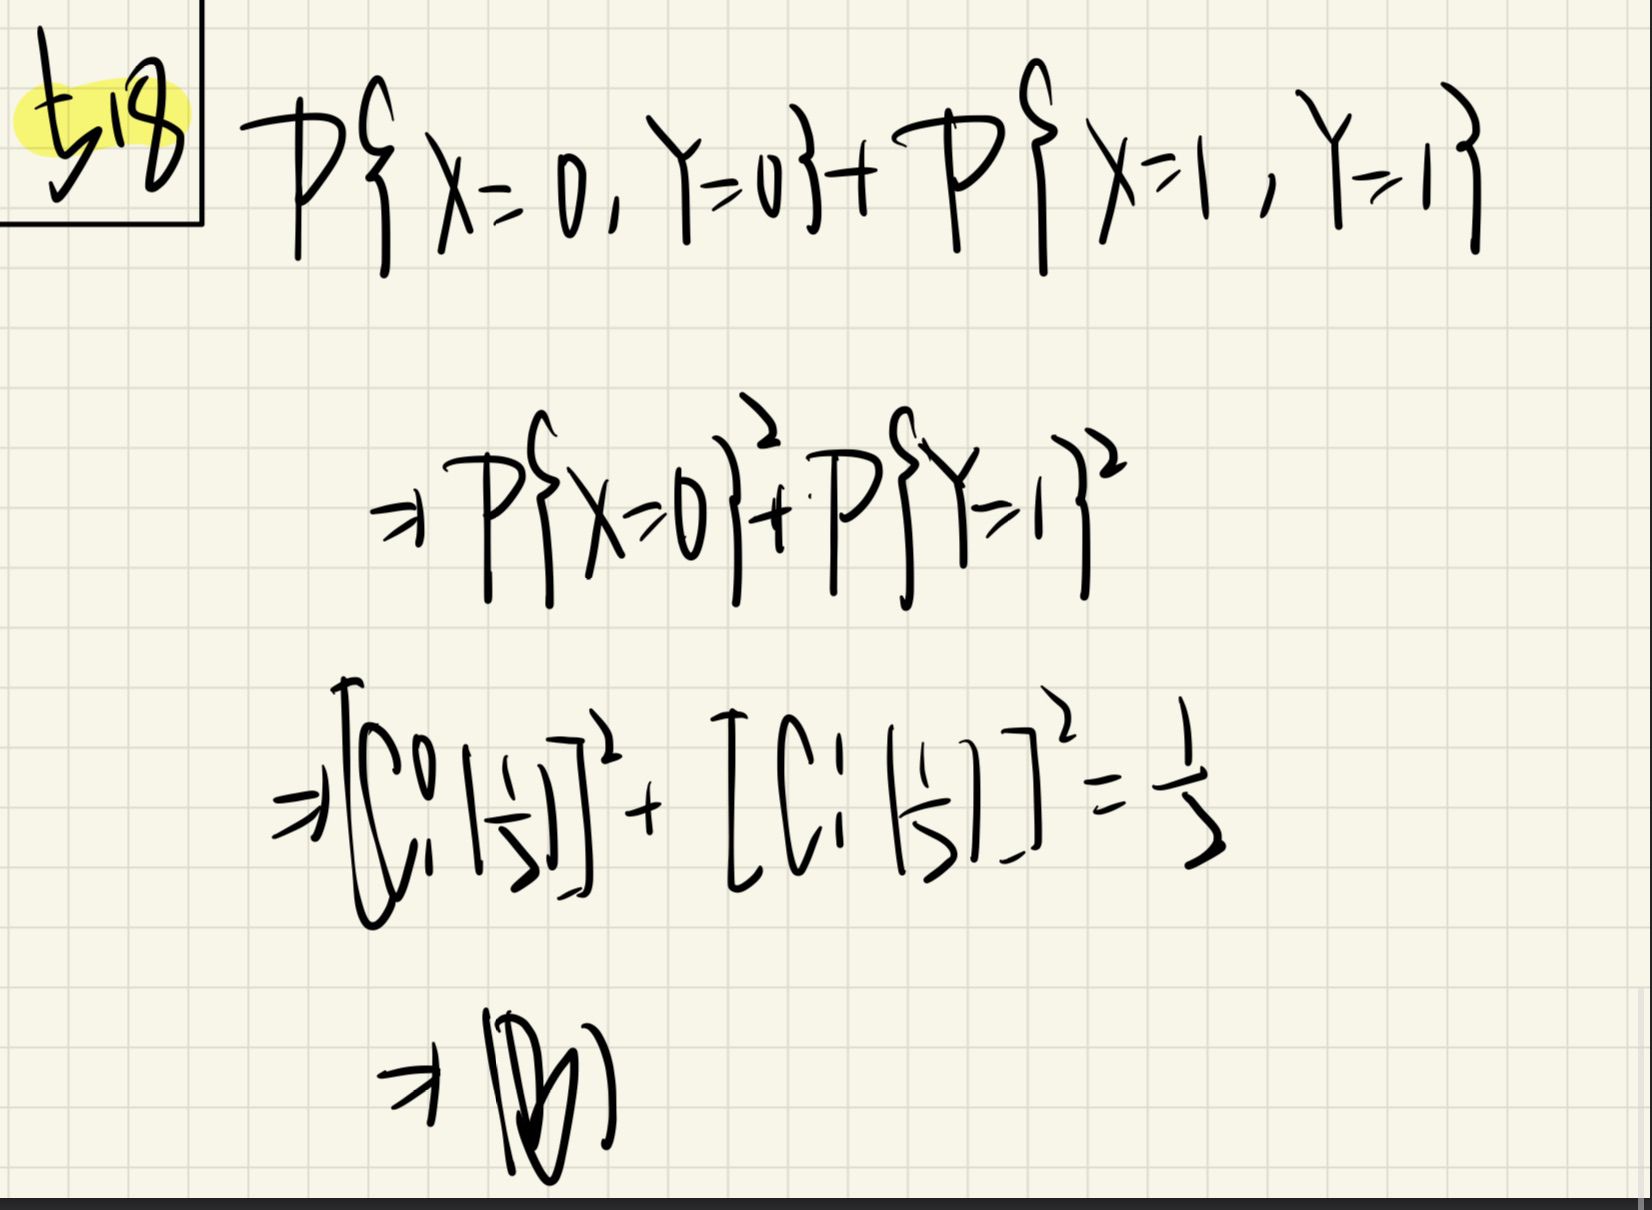 18
P{X=0, Y=0}+P{X=1, Y=1}
⇒ P{X=0}²+P{Y=1}²
⇒ [C₁⁰(1/2)]² + [C₁¹(1/2)]² = 1/2
⇒ (B)